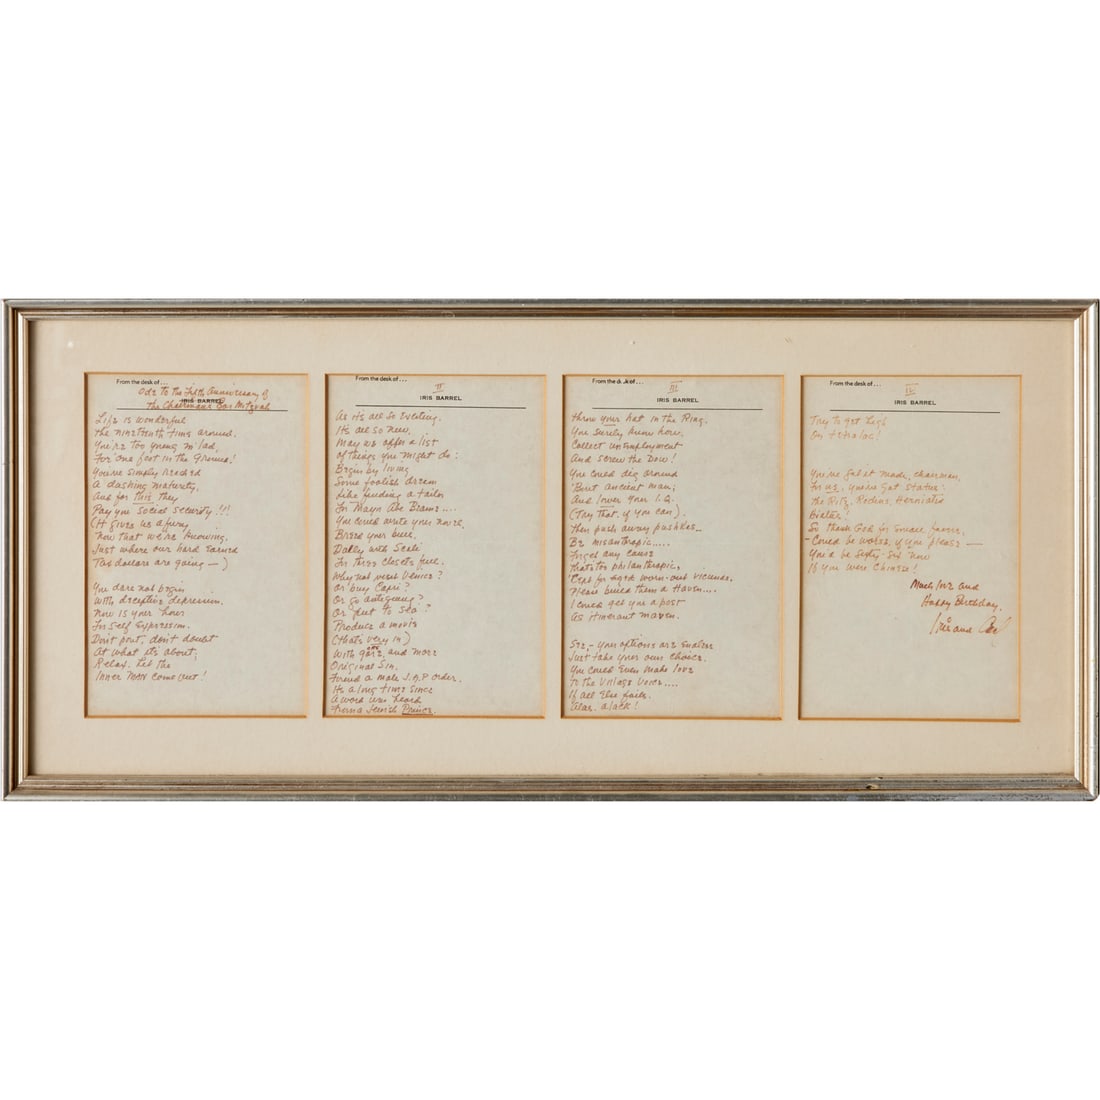 From the desk of...
Ode to the Fifth Anniversary of
IRIS BARREL
the Chairman's Bar Mitzvah
Life is wonderful
the nineteenth time around.
You're too young m'lad,
For one foot in the Ground!
You've simply reached
A dashing maturity,
And for this they
Pay you Social Security!!!
(It gives us a funny
Now that we're knowing,
Just where our hard earned
Tax dollars are going —)
You dare not begin
With deceptive depression.
Now is your hour
For Self Expression.
Don't pout, don't doubt
At what it's about;
Relax. Let the
Inner Man come out!
From the desk of...
II
IRIS BARREL
As it's all so evolving.
It's all so new,
May we offer a list
of things you might do:
Begin by living
Some foolish dream
Like finding a tailor
For Mayor Abe Beame....
You could write your more,
Braid your
Dally with Scali
In three closets full.
Why not visit Venice?
Or buy Capri?
Or go antiquing?
Or "put to sea"?
Produce a movie
(that's very in)
With gore, and more
Original Sin.
Found a male J.A.P order.
It's a long time since
A word was heard
From a Jewish Prince.
From the desk of...
III
IRIS BARREL
throw your hat in the Ring.
You surely know how,
Collect unemployment
And screw the Dow!
You could dig around
'Bout Ancient man;
And lower your I.Q.
(Try that, if you can).
Then push away pushkes..
Be misanthropic.....
Forget any cause
that's too philanthropic,
'Cept for aged worn-out
Please build them a Haven....
I could get you a post
As itinerant maven.
See - your options are endless
Just take your own choice.
You could even make love
To the Village Voice....
If all else fails.
Alas, alack!
From the desk of...
IV
IRIS BARREL
Try to get high
On tetralac!
You've got it made, chairman,
For us, you've got status:
the Ritz, Rodins, Herniatis
Hiatus!
So thank God for small favors,
-Could be worse, if you please—
You'd be Sixty-Six now
If you were Chinese!
Much love and
Happy Birthday,
Iris and Carl